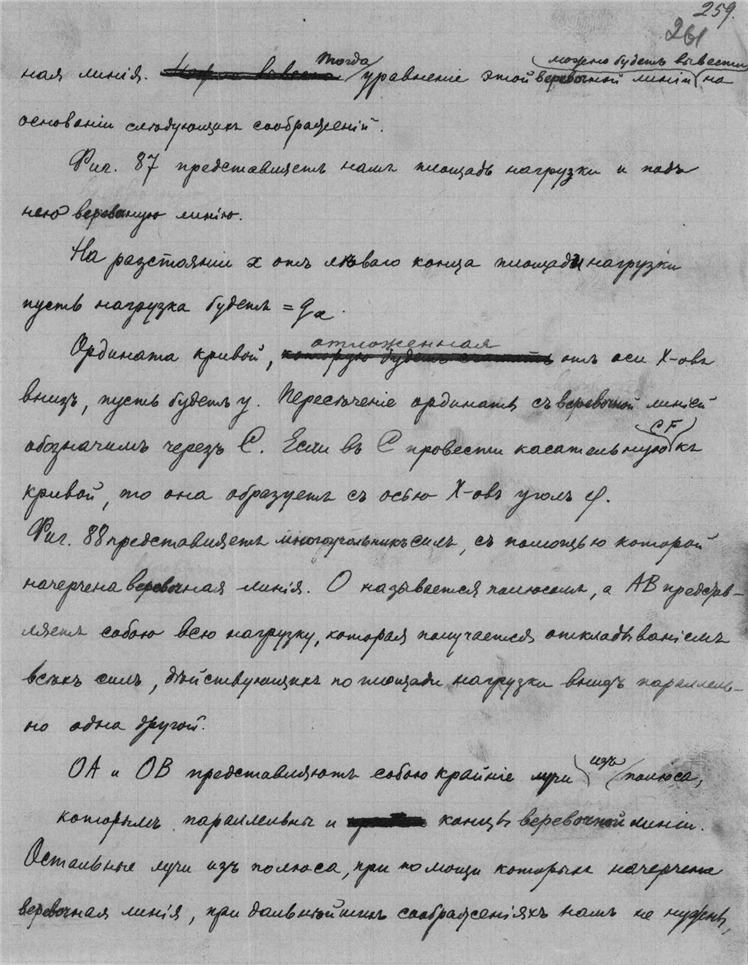 259.
261
ная линія. Тогда уравненіе этой веревочной линіи можно будетъ вывести на
основаніи слѣдующихъ соображеній.
Фиг. 87 представляетъ намъ площадь нагрузки и подъ
нею веревочную линію.
На разстояніи x отъ лѣваго конца площади нагрузки
пусть нагрузка будетъ = qx.
Ордината кривой, отложенная отъ оси X-овъ
внизъ, пусть будетъ y. Пересѣченіе ординаты съ веревочной линіей
обозначимъ черезъ C. Если въ C провести касательную CF къ
кривой, то она образуетъ съ осью X-овъ уголъ φ.
Фиг. 88 представляетъ многоугольникъ силъ, съ помощью которой
начерчена веревочная линія. O называется полюсомъ, а AB представ-
ляетъ собою всю нагрузку, которая получается откладываніемъ
всѣхъ силъ, дѣйствующихъ по площади нагрузки внизъ параллель-
но одна другой.
OA и OB представляютъ собою крайніе лучи изъ полюса,
которымъ параллельны и концы веревочной линіи.
Остальные лучи изъ полюса, при помощи которыхъ начерчена
веревочная линія, при дальнѣйшихъ соображеніяхъ намъ не нужны,